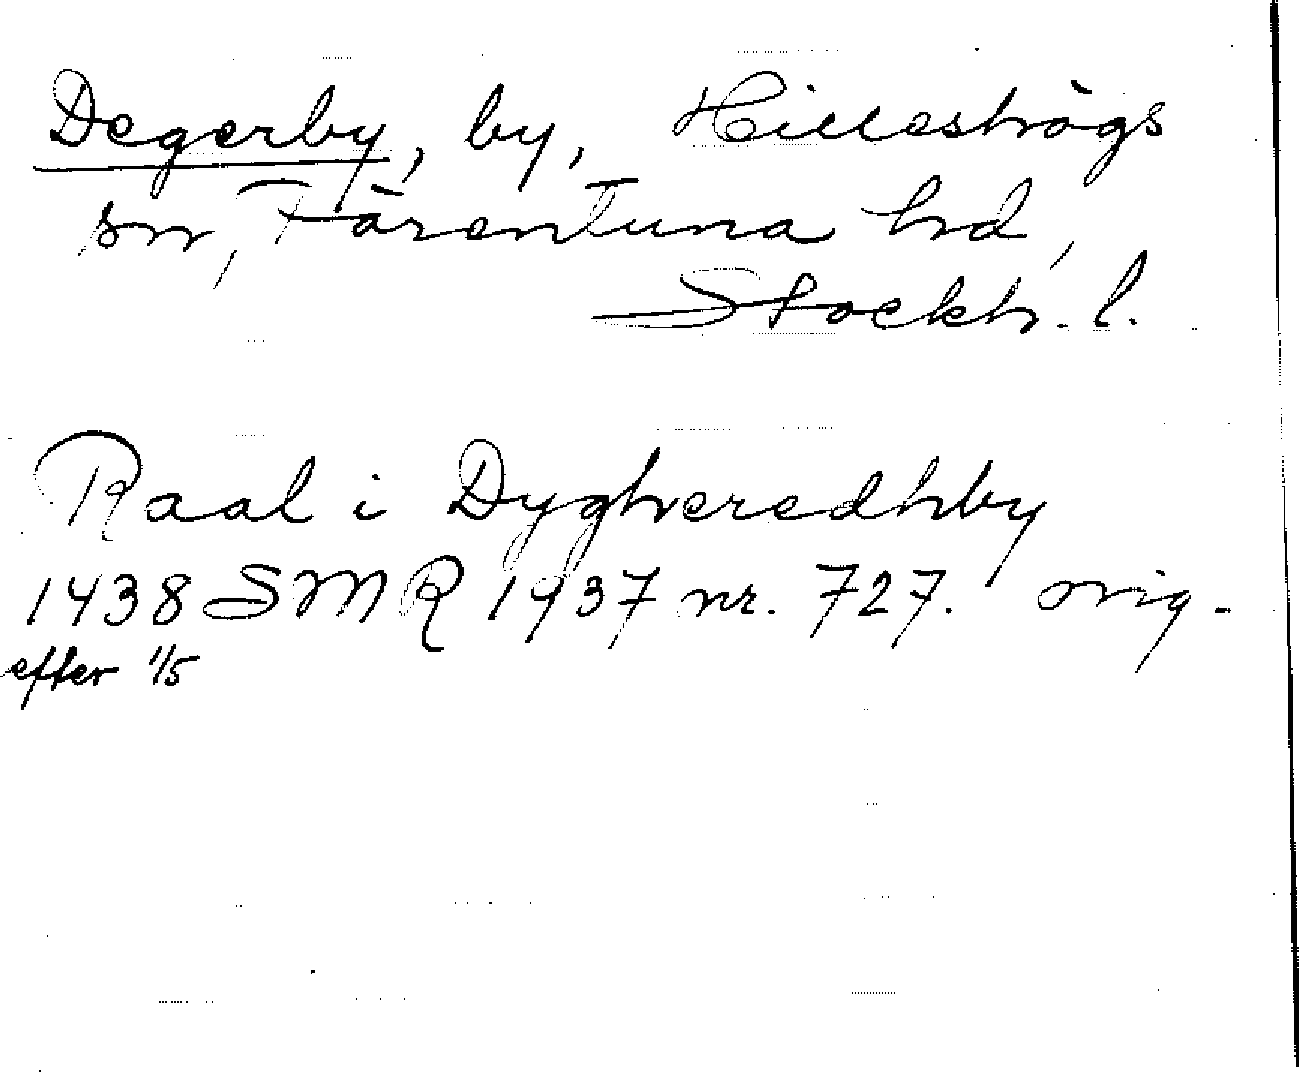 Degerby, by, Hilleshögs
sn, Färentuna hd,
Stockh. l.
Raal i Dyghveredhby
1438 SMR 1937 nr. 727. orig.
efter 1/5